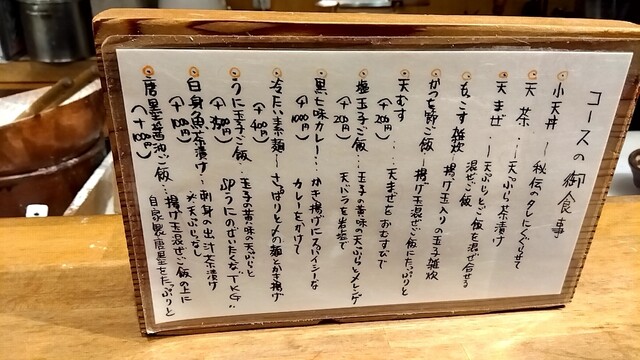 コースの御食事
小天丼 ― 秘伝のタレにくぐらせて
天茶 … 天ぷら茶漬け
天まぜ ― 天ぷらとご飯を混ぜ合せる
混ぜご飯
もこす雑炊 ― 揚げ玉入りの玉子雑炊
かつを節ご飯 ― 揚げ玉混ぜご飯にたっぷりと
天むす … 天まぜをおむすびで
(+200円)
塩玉子ご飯 … 玉子の黄味の天ぷらとメレンゲ
(+200円) 天バラを岩塩で
黒七味カレー … かき揚げにスパイシーな
(+1000円) カレーをかけて
冷たい素麺 ― さっぱり〆の麺とかき揚げ
(+400円)
うに玉子ご飯 … 玉子の黄味の天ぷらと
SPうにのぜいたくなTKG
白身魚茶漬け … 刺身の出汁茶漬け
(+100円) ※天ぷらなし
唐墨醤油ご飯 … 揚げ玉混ぜご飯の上に
(+1000円) 自家製唐墨をたっぷりと